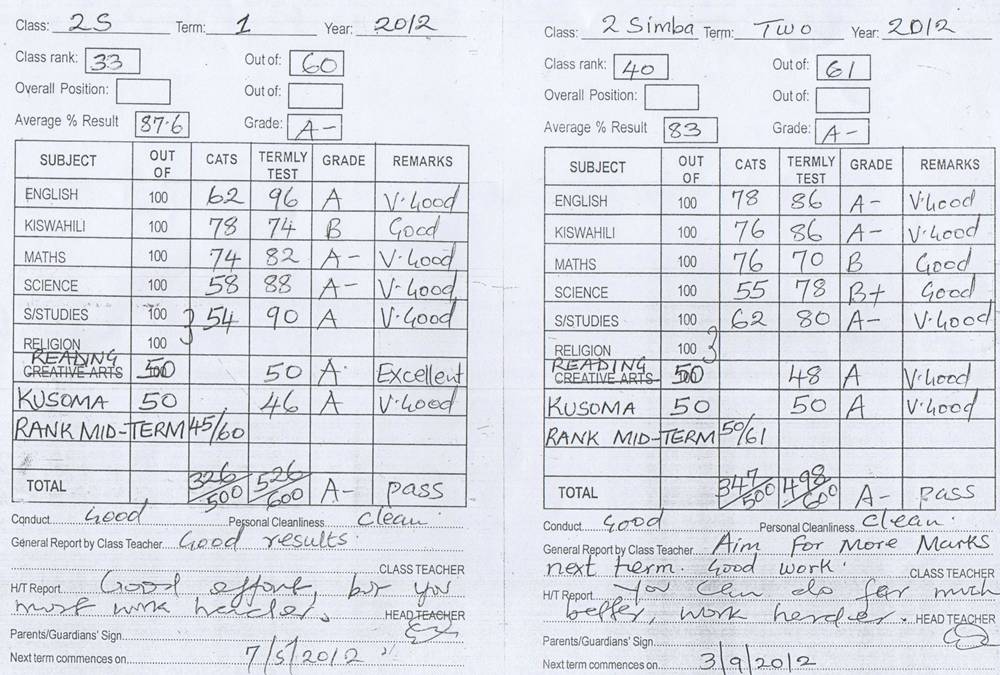 Class: 2S Term: 1 Year: 2012
Class rank: 33 Out of: 60
Overall Position: Out of:
Average % Result 87.6 Grade: A-
SUBJECT OUT OF CATS TERMLY TEST GRADE REMARKS
ENGLISH 100 62 96 A V.Good
KISWAHILI 100 78 74 B Good
MATHS 100 74 82 A- V.Good
SCIENCE 100 58 88 A- V.Good
S/STUDIES 100 54 90 A V.Good
RELIGION 100
READING
CREATIVE ARTS 50 50 A Excellent
KUSOMA 50 46 A V.Good
RANK MID-TERM 45/60
TOTAL 326/500 526/600 A- pass
Conduct Good Personal Cleanliness clean.
General Report by Class Teacher Good results.
CLASS TEACHER
H/T Report Good effort, but you
must work harder. HEAD TEACHER
Parents/Guardians' Sign
Next term commences on 7/5/2012
Class: 2 Simba Term: Two Year: 2012
Class rank: 40 Out of: 61
Overall Position: Out of:
Average % Result 83 Grade: A-
SUBJECT OUT OF CATS TERMLY TEST GRADE REMARKS
ENGLISH 100 78 86 A- V.Good
KISWAHILI 100 76 86 A- V.Good
MATHS 100 76 70 B Good
SCIENCE 100 55 78 B+ Good
S/STUDIES 100 62 80 A- V.Good
RELIGION 100
READING
CREATIVE ARTS 50 48 A V.Good
KUSOMA 50 50 A V.Good
RANK MID-TERM 50/61
TOTAL 347/500 498/600 A- pass
Conduct Good Personal Cleanliness clean.
General Report by Class Teacher Aim For More Marks
next term. Good work. CLASS TEACHER
H/T Report You can do far much
better, work harder. HEAD TEACHER
Parents/Guardians' Sign
Next term commences on 3/9/2012